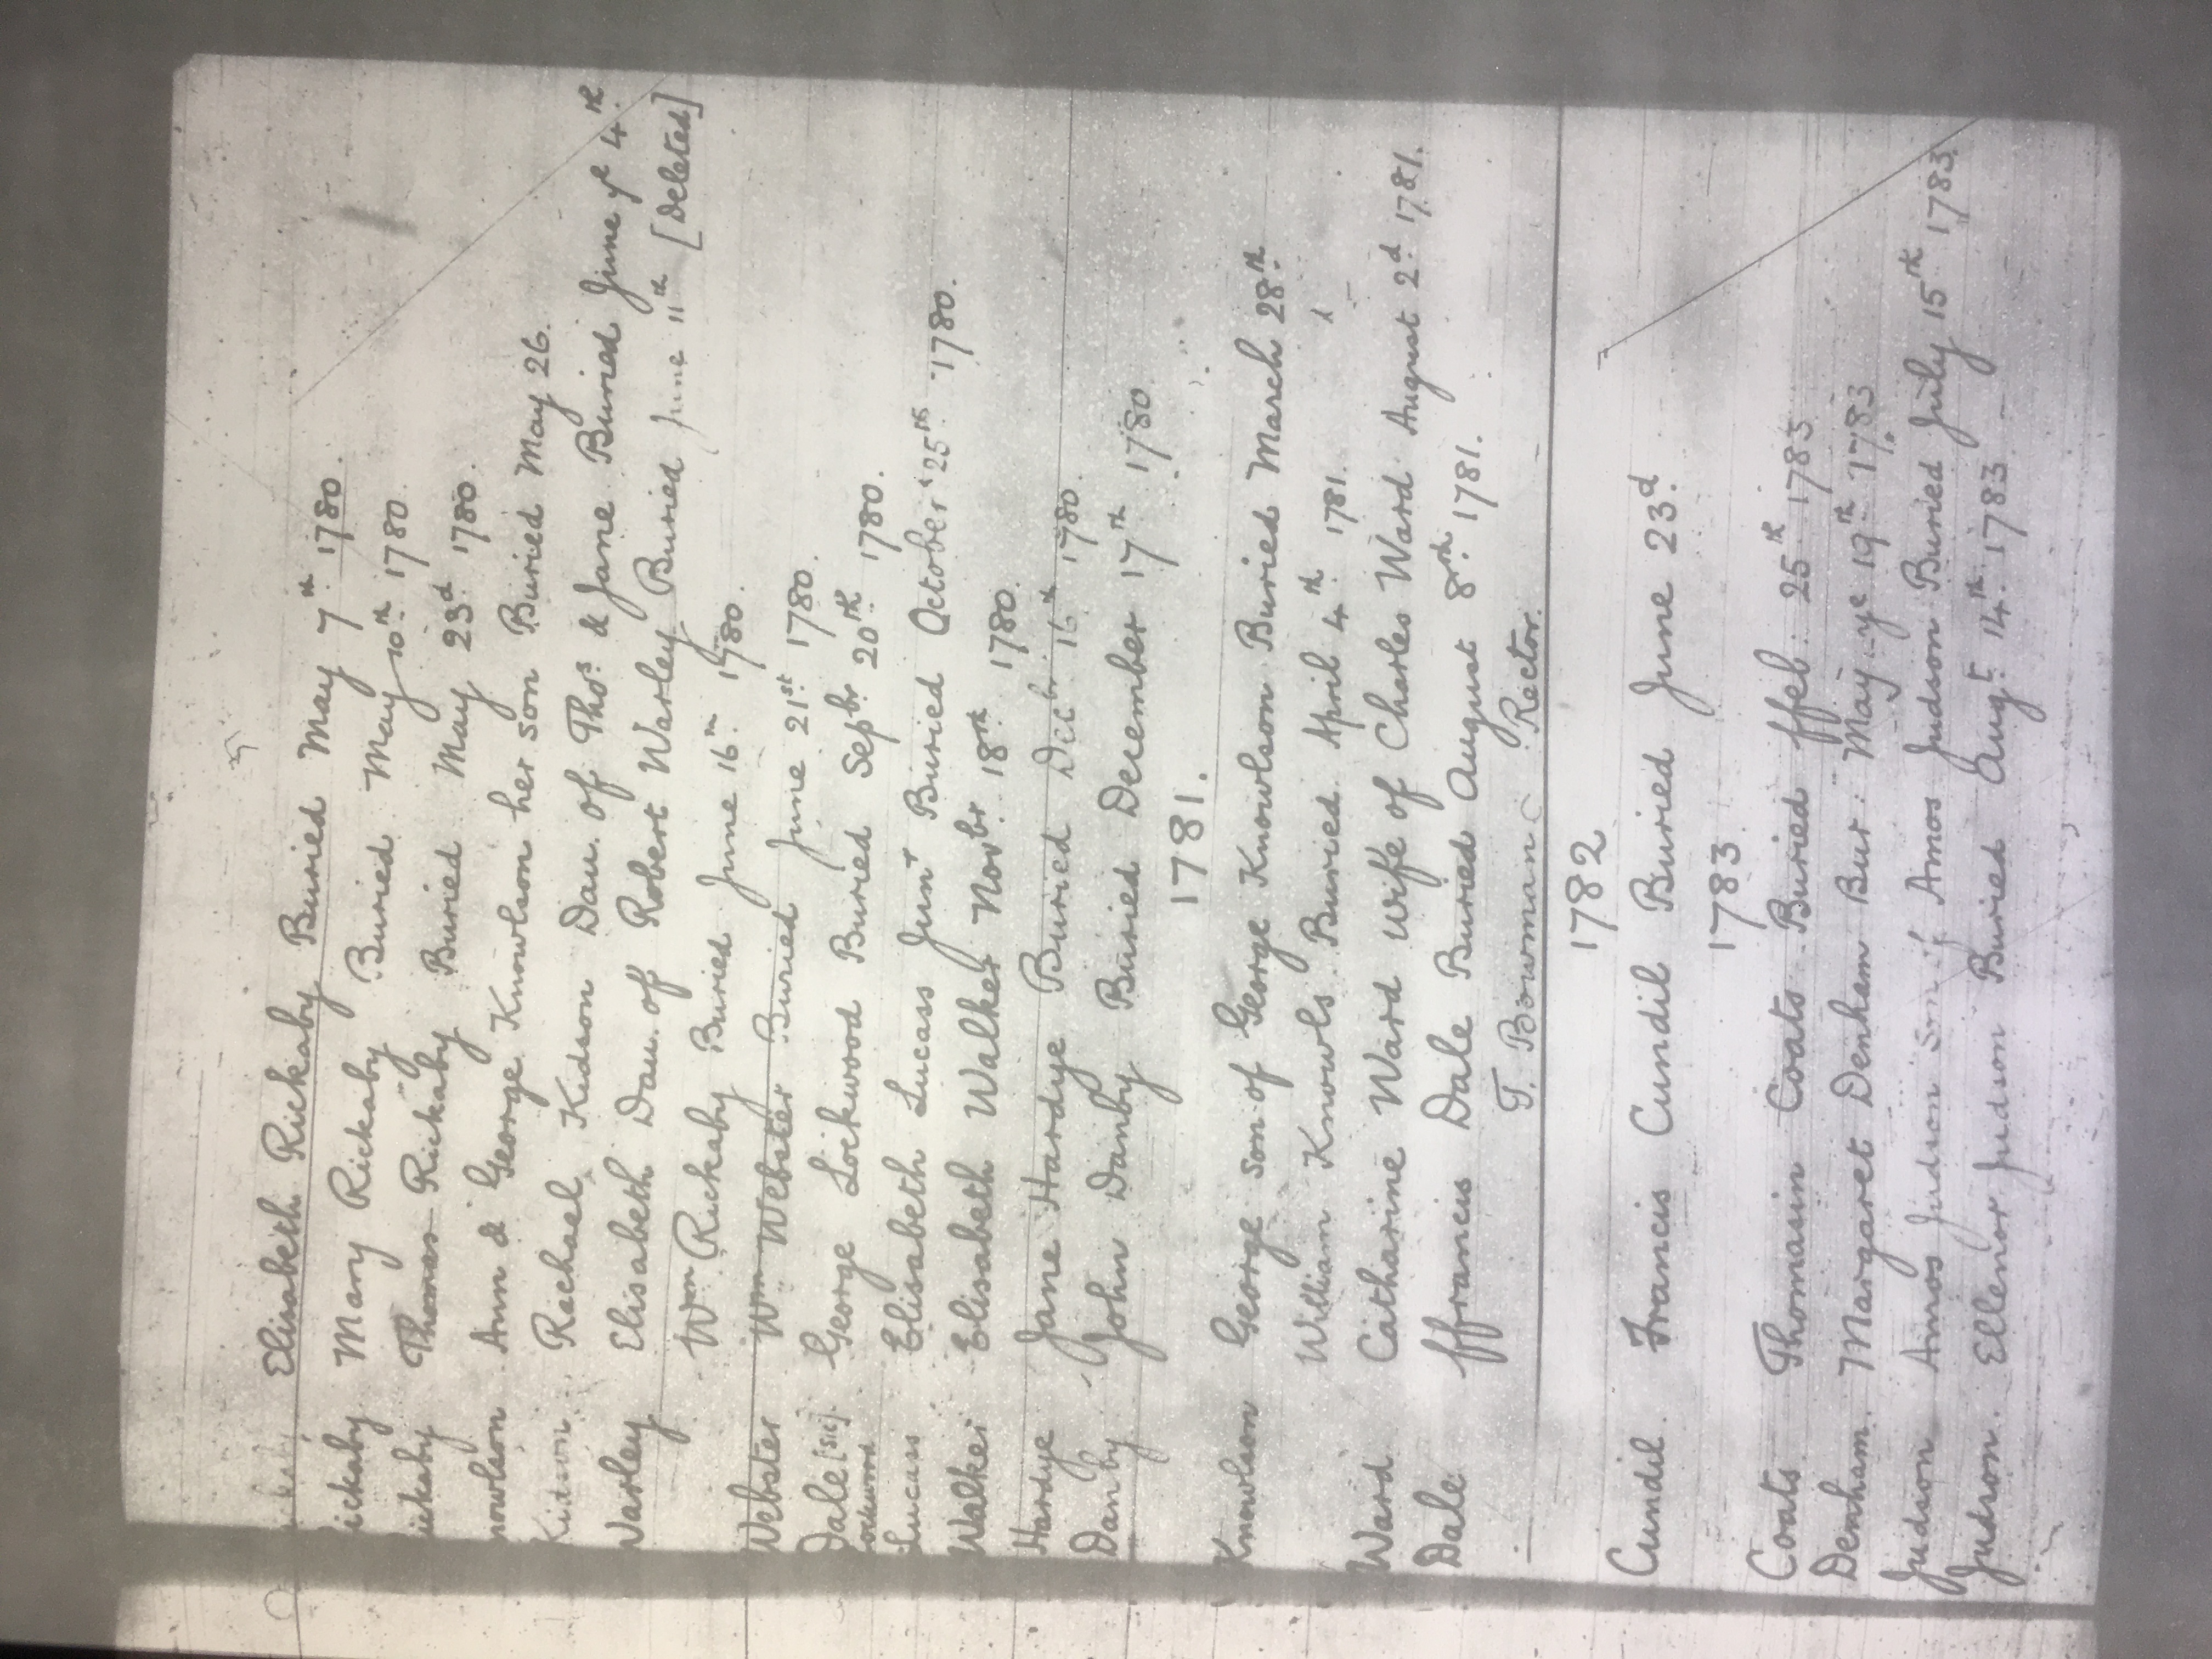 Elisabeth Rickaby Buried May 7th 1780.
ickaby Mary Rickaby Buried May 10th 1780
ickaby Thomas Rickaby Buried May 23d 1780.
nowlson Ann & George Knowlson her son Buried May 26.
Kidson Rachael Kidson Dau. of Thos. & Jane Buried June ye 4th.
Warley Elisabeth Dau. of Robert Warley Buried June 11th [Deleted]
Wm Rickaby Buried June 16th 1780.
Webster Wm Webster Buried June 21st 1780.
Dale [sic] George Lockwood Buried Sepbr. 20th 1780.
ockwood
Lucass Elisabeth Lucass Junr Buried October 25th 1780.
Walker Elisabeth Walker Novbr 18th 1780.
Hardye Jane Hardye Buried Decbr. 16th 1780.
Danby John Danby Buried December 17th 1780
1781.
Knowlson George Son of George Knowlson Buried March 28th
William Knowls Buried April 4th 1781.
Ward Catharine Ward wife of Charles Ward August 2d 1781.
Dale ffrancis Dale Buried August 8th 1781.
T. Bowman Rector.
1782
Cundil Francis Cundil Buried June 23d.
1783
Coats Thomasin Coats Buried ffeb: 25th 1783
Denham. Margaret Denham Bur: May ye 19th 1783
Judson Amos Judson Son of Amos Judson Buried July 15th 1783.
Judson. Ellenor Judson Buried Augt. 14th 1783